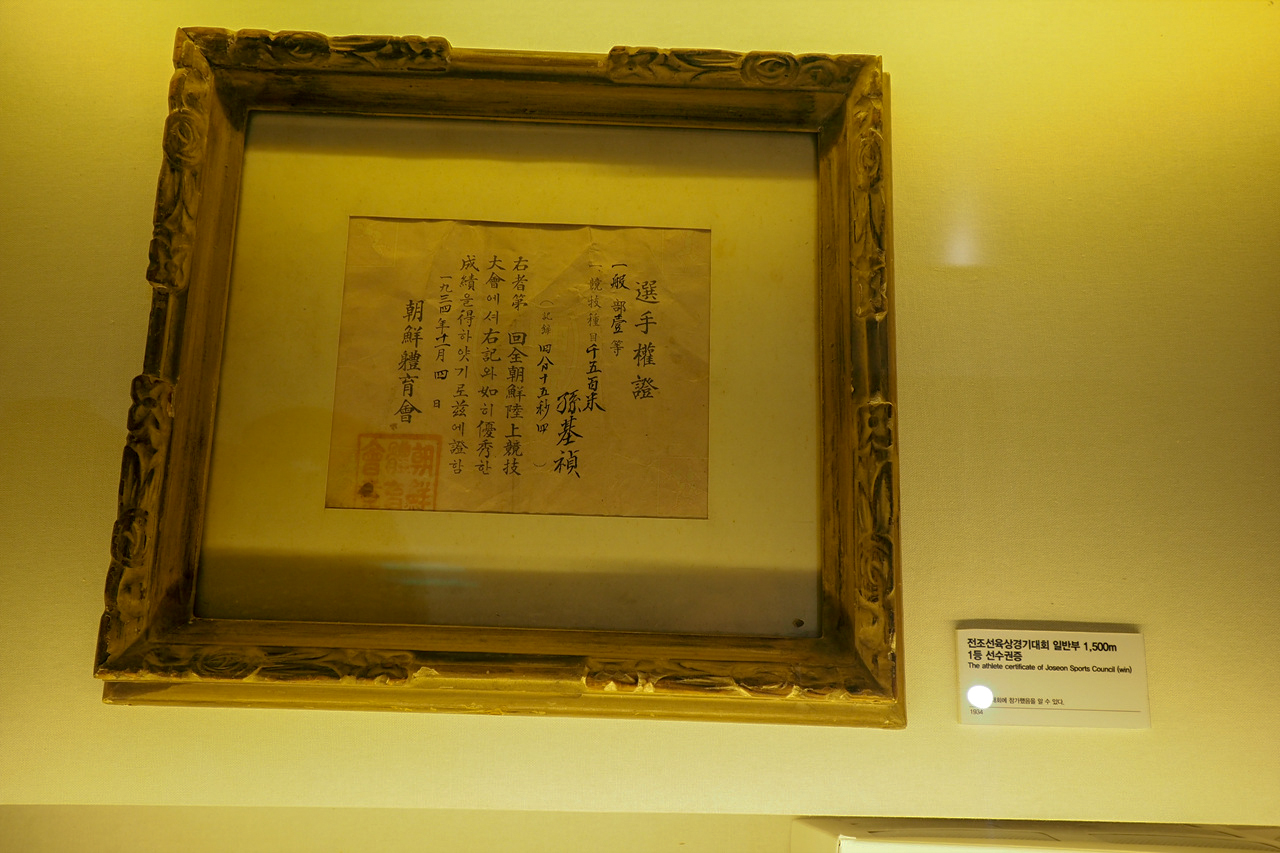 選手權證
一般部壹等
一、競技種目千五百米
孫基禎
(記錄 四分十五秒四 )
右者第 回全朝鮮陸上競技
大會에서右記와如히優秀한
成績을得하얏기로玆에證함
一九三四年十一月四日
朝鮮體育會
朝鮮
體育
會
전조선육상경기대회 일반부 1,500m
1등 선수권증
The athlete certificate of Joseon Sports Council (win)
참가했음을 알 수 있다.
1934